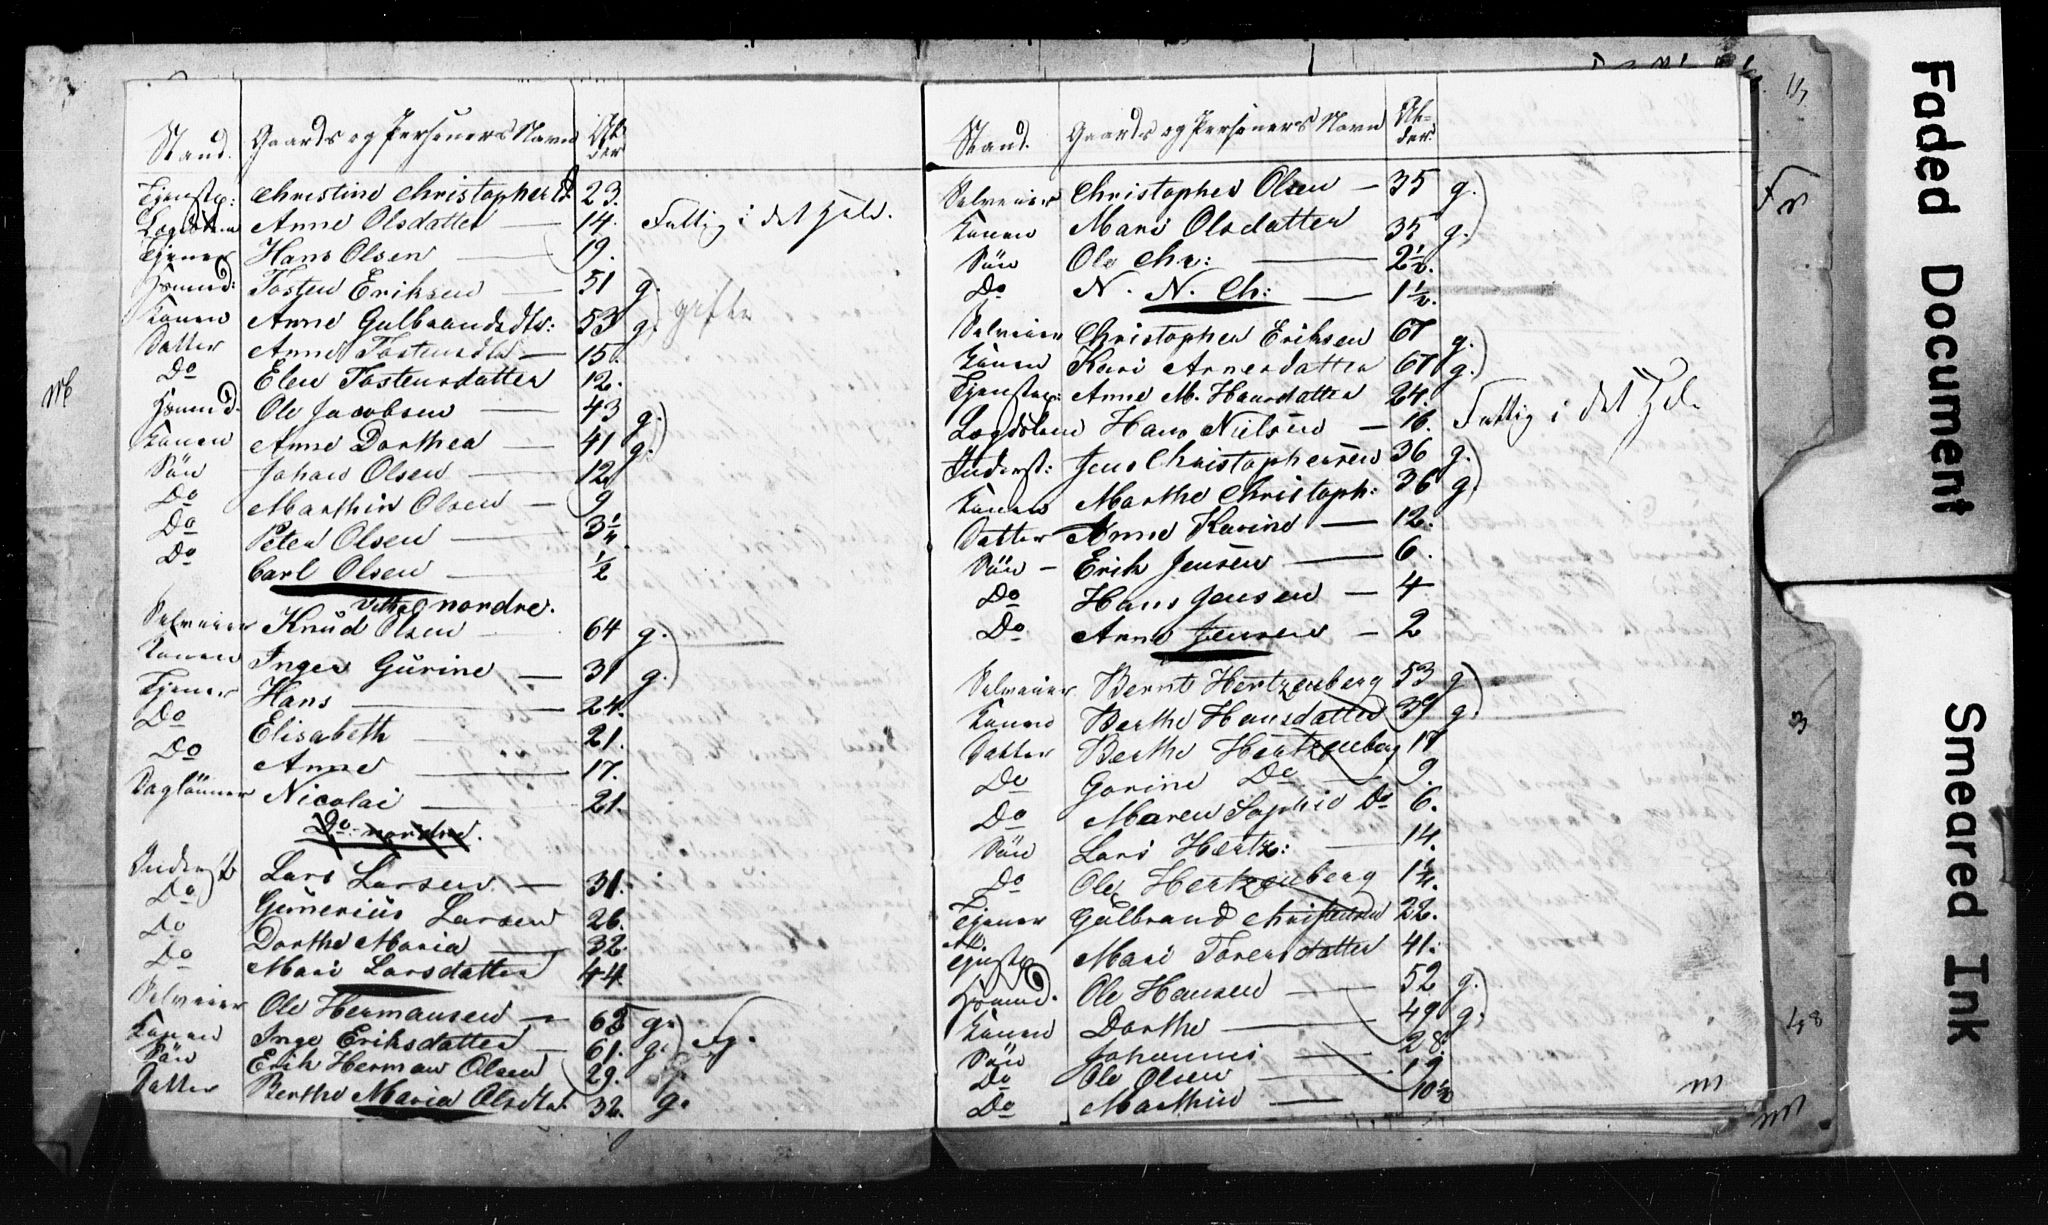 Stand. Gaards og Personers Navn Al-der
Tjenstp: Christine Christophersd. 23.
Lægdslem Anne Olsdatter — 14. Fattig i det hele.
Tjener Hans Olsen — 19.
Husmd: Tosten Eriksen — 51 g.
Konen Anne Gulbrandsdtr: 53 g. gifte
Datter Anne Tostensdtr — 15.
Do Elen Tostensdatter 12.
Husmd. Ole Jacobsen — 43 g.
Konen Anne Dorthea — 41 g.
Sön Johan Olsen — 12
Do Marthin Olsen — 9
Do Peter Olsen — 3 1/4
Do Carl Olsen — 1/2
nordre.
Selveier Knud Olsen 64 g.
Konen Inger Gurine — 31 g.
Tjener Hans — 24.
Do Elisabeth — 21.
Do Anne — 17.
Daglönner Nicolai — 21.
Do: nordre.
Inderst Lars Larsen — 31.
Do Gunerius Larsen 26.
Do Dorthe Maria — 32.
Do Mari Larsdatter 44.
Selveier Ole Hermansen — 63 g.
Konen Inge Eriksdatter — 61. g.
Sön Erik Herman Olsen 29.
Datter Berthe Maria Olsdtr. 32. g.
Stand. Gaards og Personers Navn Al-der.
Selveier Christopher Olsen — 35 g.
Konen Mari Olsdatter 35 g.
Sön Ole Chr: — 2 1/2.
Do N. N. Ch: — 1 1/2.
Selveier Christopher Eriksen 67 g.
Konen Kari Arnesdatter 67 g.
Tjenstp: Anne M. Hansdatter 24.
Lægdslem Hans Nielsen — 16. Fattig i det hele
Inderst: Jens Christophersen 36 g.
Konen Marthe Christoph: 36 g.
Datter Anne Karine — 12.
Sön — Erik Jensen — 6.
Do Hans Jensen — 4
Do Anne Jensen — 2
Selveier Bernt Hertzenberg 53 g.
Konen Berthe Hansdatter 39 g.
Datter Berthe Hertzenberg 17
Do Gorine Do — 9.
Do Maren Sophie Do 6.
Sön Lars Hertz: — 14.
Do Ole Hertzenberg 1 1/4.
Tjener Gulbrand Christensen 22.
Tjenstp Mari Torersdatter 41.
Husmd. Ole Hansen — 52 g.
Konen Dorthe — 49 g.
Sön Johannes — 28.
Do Ole Olsen — 19
Do Marthin — 10 1/2
m
Faded Document
Smeared Ink